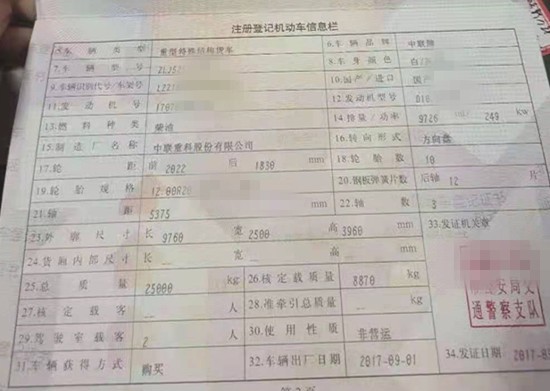 注册登记机动车信息栏
5.车辆类型 重型特殊结构货车 6.车辆品牌 中联牌
7.车辆型号 ZLJ52 8.车身颜色 白/
9.车辆识别代号/车架号 10.国产/进口 国产
11.发动机号 12.发动机型号
13.燃料种类 柴油 14.排量/功率 9726 249 kw
15.制造厂名称 中联重科股份有限公司 16.转向形式 方向盘
17.轮距 前 2022 后 1830 mm 18.轮胎数 10
19.轮胎规格 12.00R20 20.钢板弹簧片数 后轴 12 片
21.轴距 5375 mm 22.轴数 3
23.外廓尺寸 长 9760 宽 2500 高 3960 mm 33.发证机关章
24.货厢内部尺寸 长 -- 宽 -- 高 -- mm
25.总质量 25000 kg 26.核定载质量 8870 kg
27.核定载客 -- 人 28.准牵引总质量 -- kg
29.驾驶室载客 2 人 30.使用性质 非营运
安局交
通警察支队
31.车辆获得方式 购买 32.车辆出厂日期 2017-09-01 34.发证日期 2017-
第2页